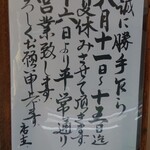 誠に勝手乍ら
八月十一日〜十五日迄
お夏休みさせて頂きます
十六日より平常通り
営業致します
よろしくお願い申上げます
店主